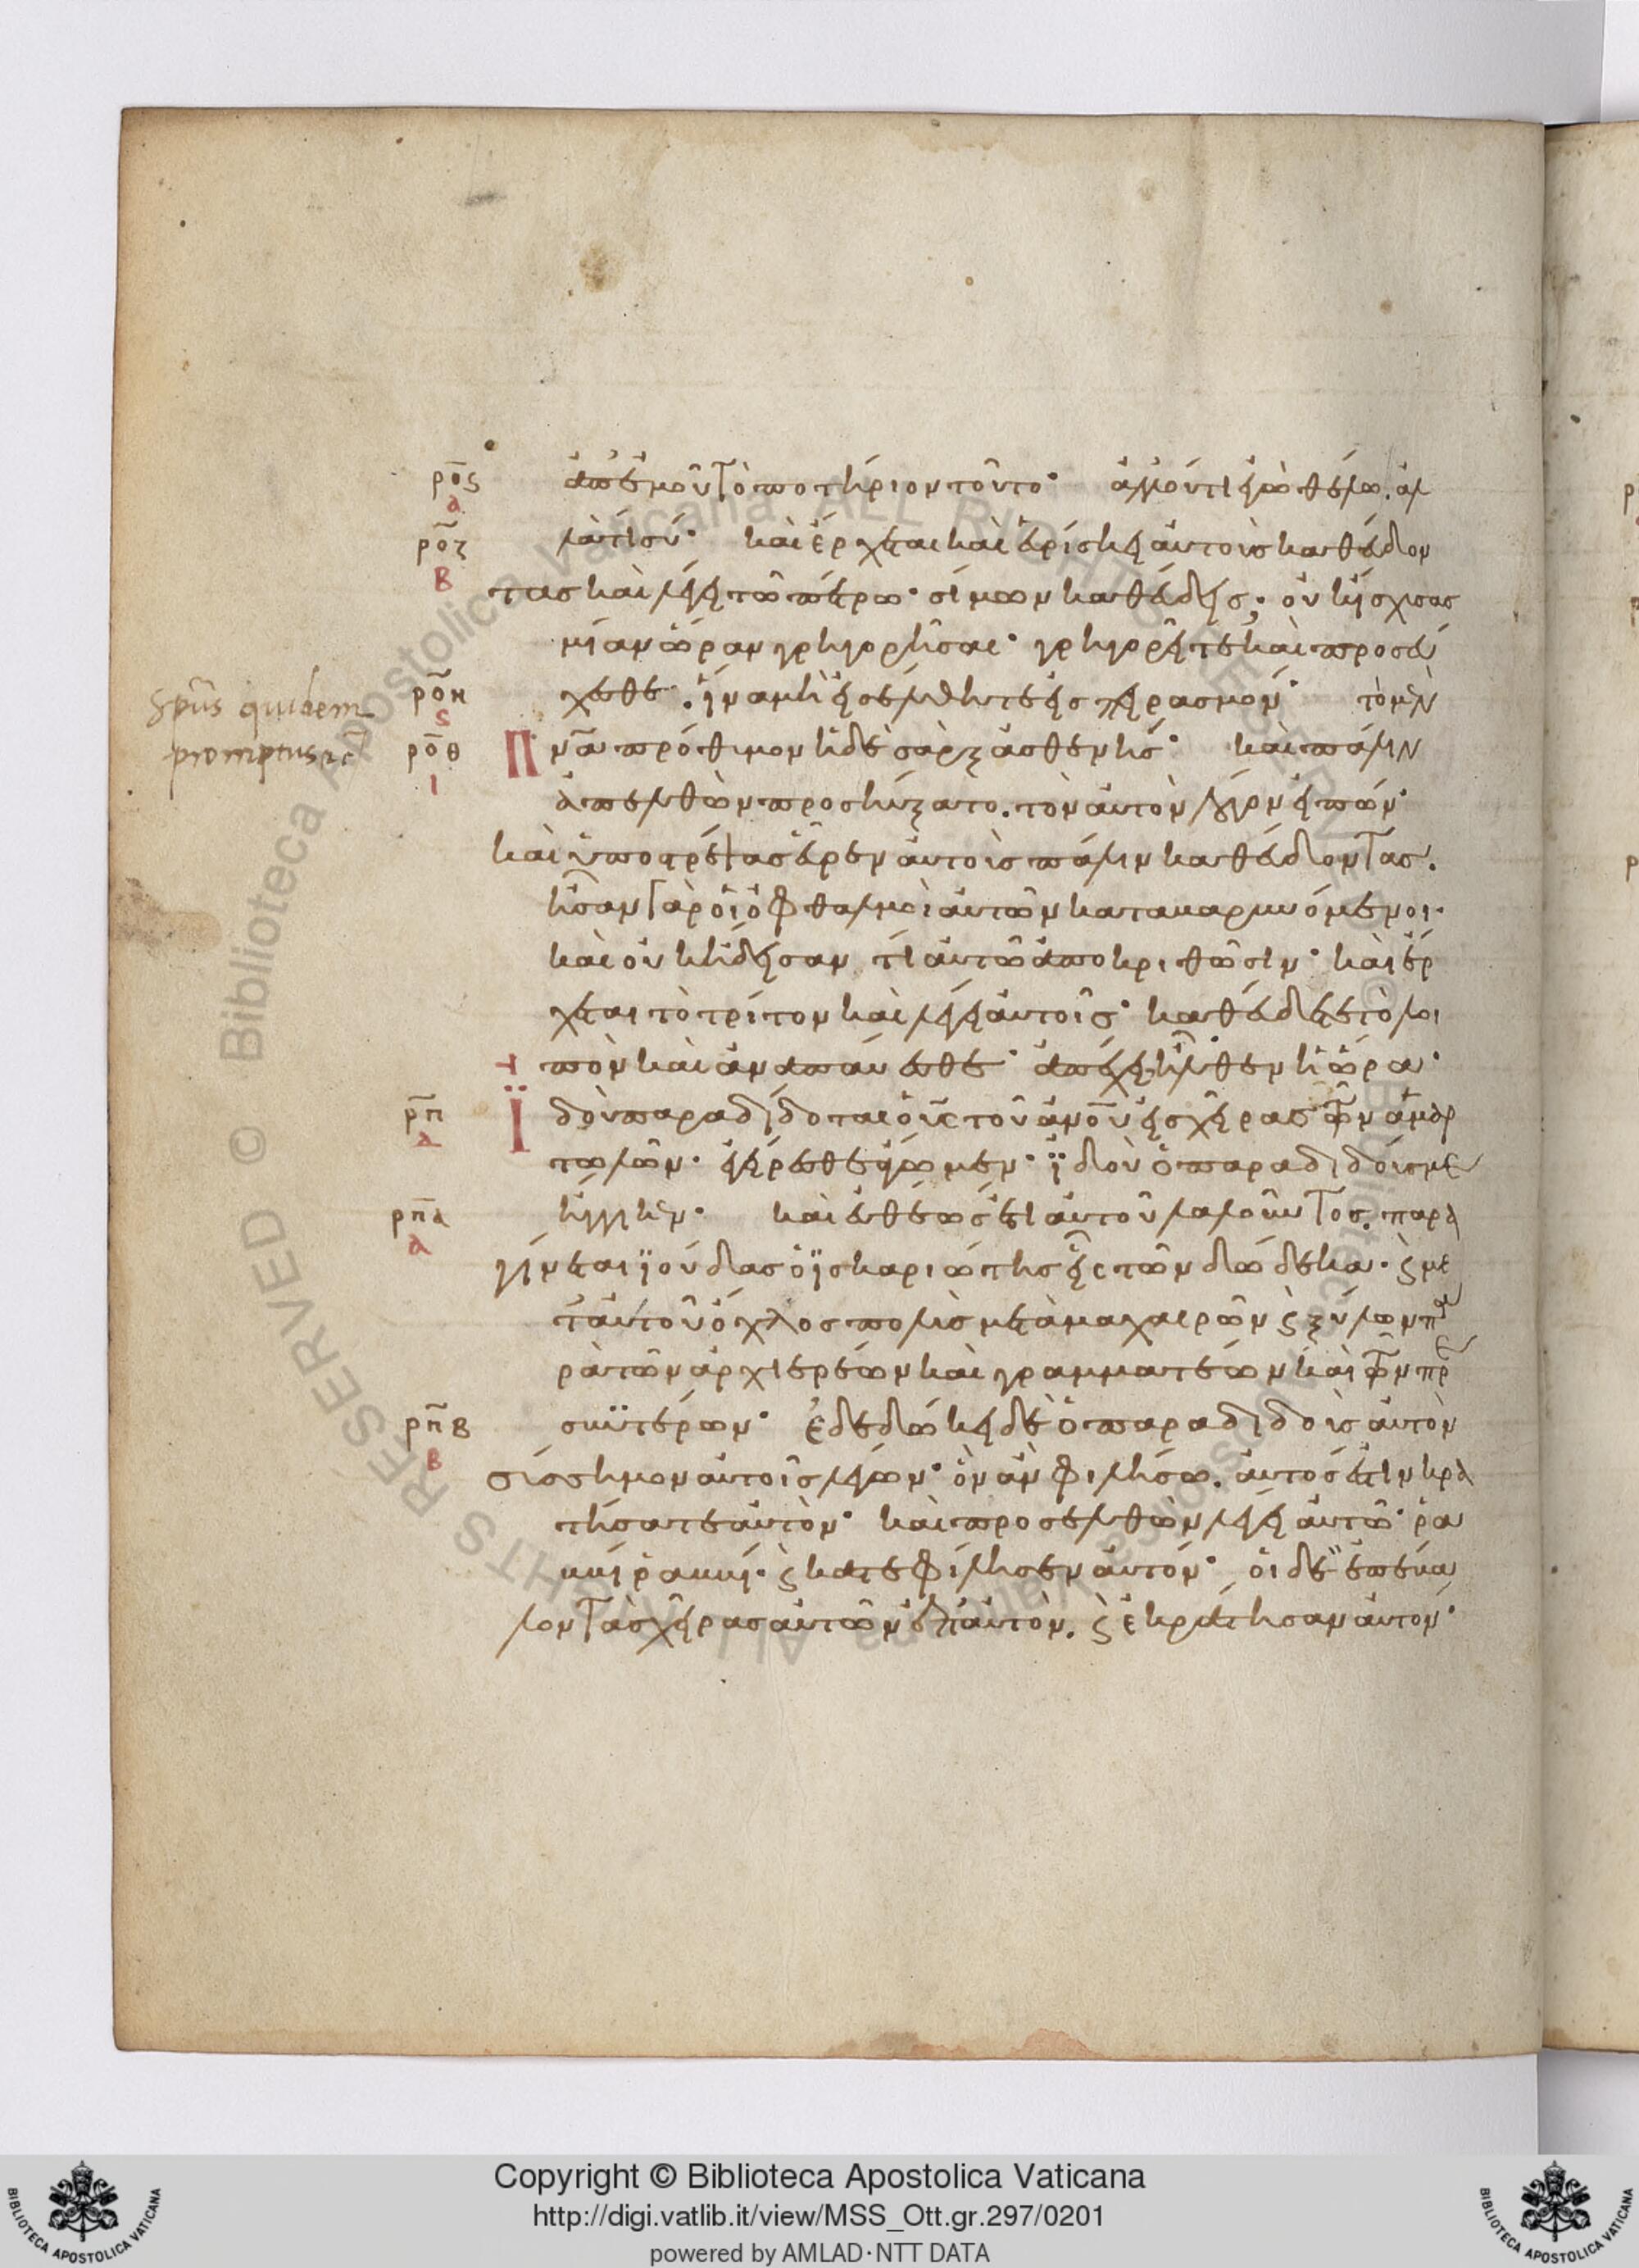 ρος
α
ἀπ' ἐμοῦ τὸ ποτήριον τοῦτο· ἀλλ' οὐ τί ἐγὼ θέλω. ἀλ
ροζ
λὰ τί σύ· καὶ ἔρχεται καὶ εὑρίσκει αὐτοὺς καθεύδον
Β
τας καὶ λέγει τῶ πέτρω· σίμων καθεύδεις; οὐκ ἴσχυσας
μίαν ὥραν γρηγορῆσαι· γρηγορεῖτε καὶ προσεύ
Spūs quidem
ροη
ς
χεσθε. ἵνα μὴ εἰσέλθητε εἰς πειρασμόν· τὸ μὲν
promptus
ροθ
Ι
Πνα πρόθυμον ἡ δὲ σὰρξ ἀσθενής· καὶ πάλιν
ἀπελθὼν προσηύξατο. τὸν αὐτὸν λόγον εἰπών·
καὶ ὑποστρέψας εὗρεν αὐτοὺς πάλιν καθεύδοντας.
ἦσαν γὰρ οἱ ὀφθαλμοὶ αὐτῶν καταβαρυνόμενοι.
καὶ οὐκ ἤδεισαν τί αὐτῶ ἀποκριθῶσιν· καὶ ἔρ
χεται τὸ τρίτον καὶ λέγει αὐτοῖς· καθεύδετε τὸ λοι
πὸν καὶ ἀναπαύεσθε· ἀπέχει ἦλθεν ἡ ὥρα·
ρπ
α
Ἰδοὺ παραδίδοται ὁ υς τοῦ ανου εἰς χεῖρας τῶν ἁμαρ
τωλῶν· ἐγείρεσθε ἄγωμεν· ἰδοὺ ὁ παραδιδούς με
ρπα
α
ἤγγικεν· καὶ εὐθέως ἔτι αὐτοῦ λαλοῦντος. παρα
γίνεται ἰούδας ὁ ἰσκαριώτης εἷς τῶν δώδεκα. ϗ με
τ' αὐτοῦ ὄχλος πολὺς μετὰ μαχαιρῶν ϗ ξύλων πα
ρὰ τῶν ἀρχιερέων καὶ γραμματέων καὶ τῶν πρε
ρπΒ
Β
σβυτέρων· ἐδεδώκει δὲ ὁ παραδιδοὺς αὐτὸν
σύσσημον αὐτοῖς λέγων· ὃν ἂν φιλήσω. αὐτός ἐστιν κρα
τήσατε αὐτὸν· καὶ προσελθὼν λέγει αὐτῶ· ῥα
ββὶ ῥαββί. ϗ κατεφίλησεν αὐτόν· οἱ δὲ ἐπέβα
λον τὰς χεῖρας αὐτῶν ἐπ' αὐτὸν. ϗ ἐκράτησαν αὐτον·
Copyright © Biblioteca Apostolica Vaticana
http://digi.vatlib.it/view/MSS_Ott.gr.297/0201
powered by AMLAD·NTT DATA
BIBLIOTECA APOSTOLICA VATICANA
BIBLIOTECA APOSTOLICA VATICANA